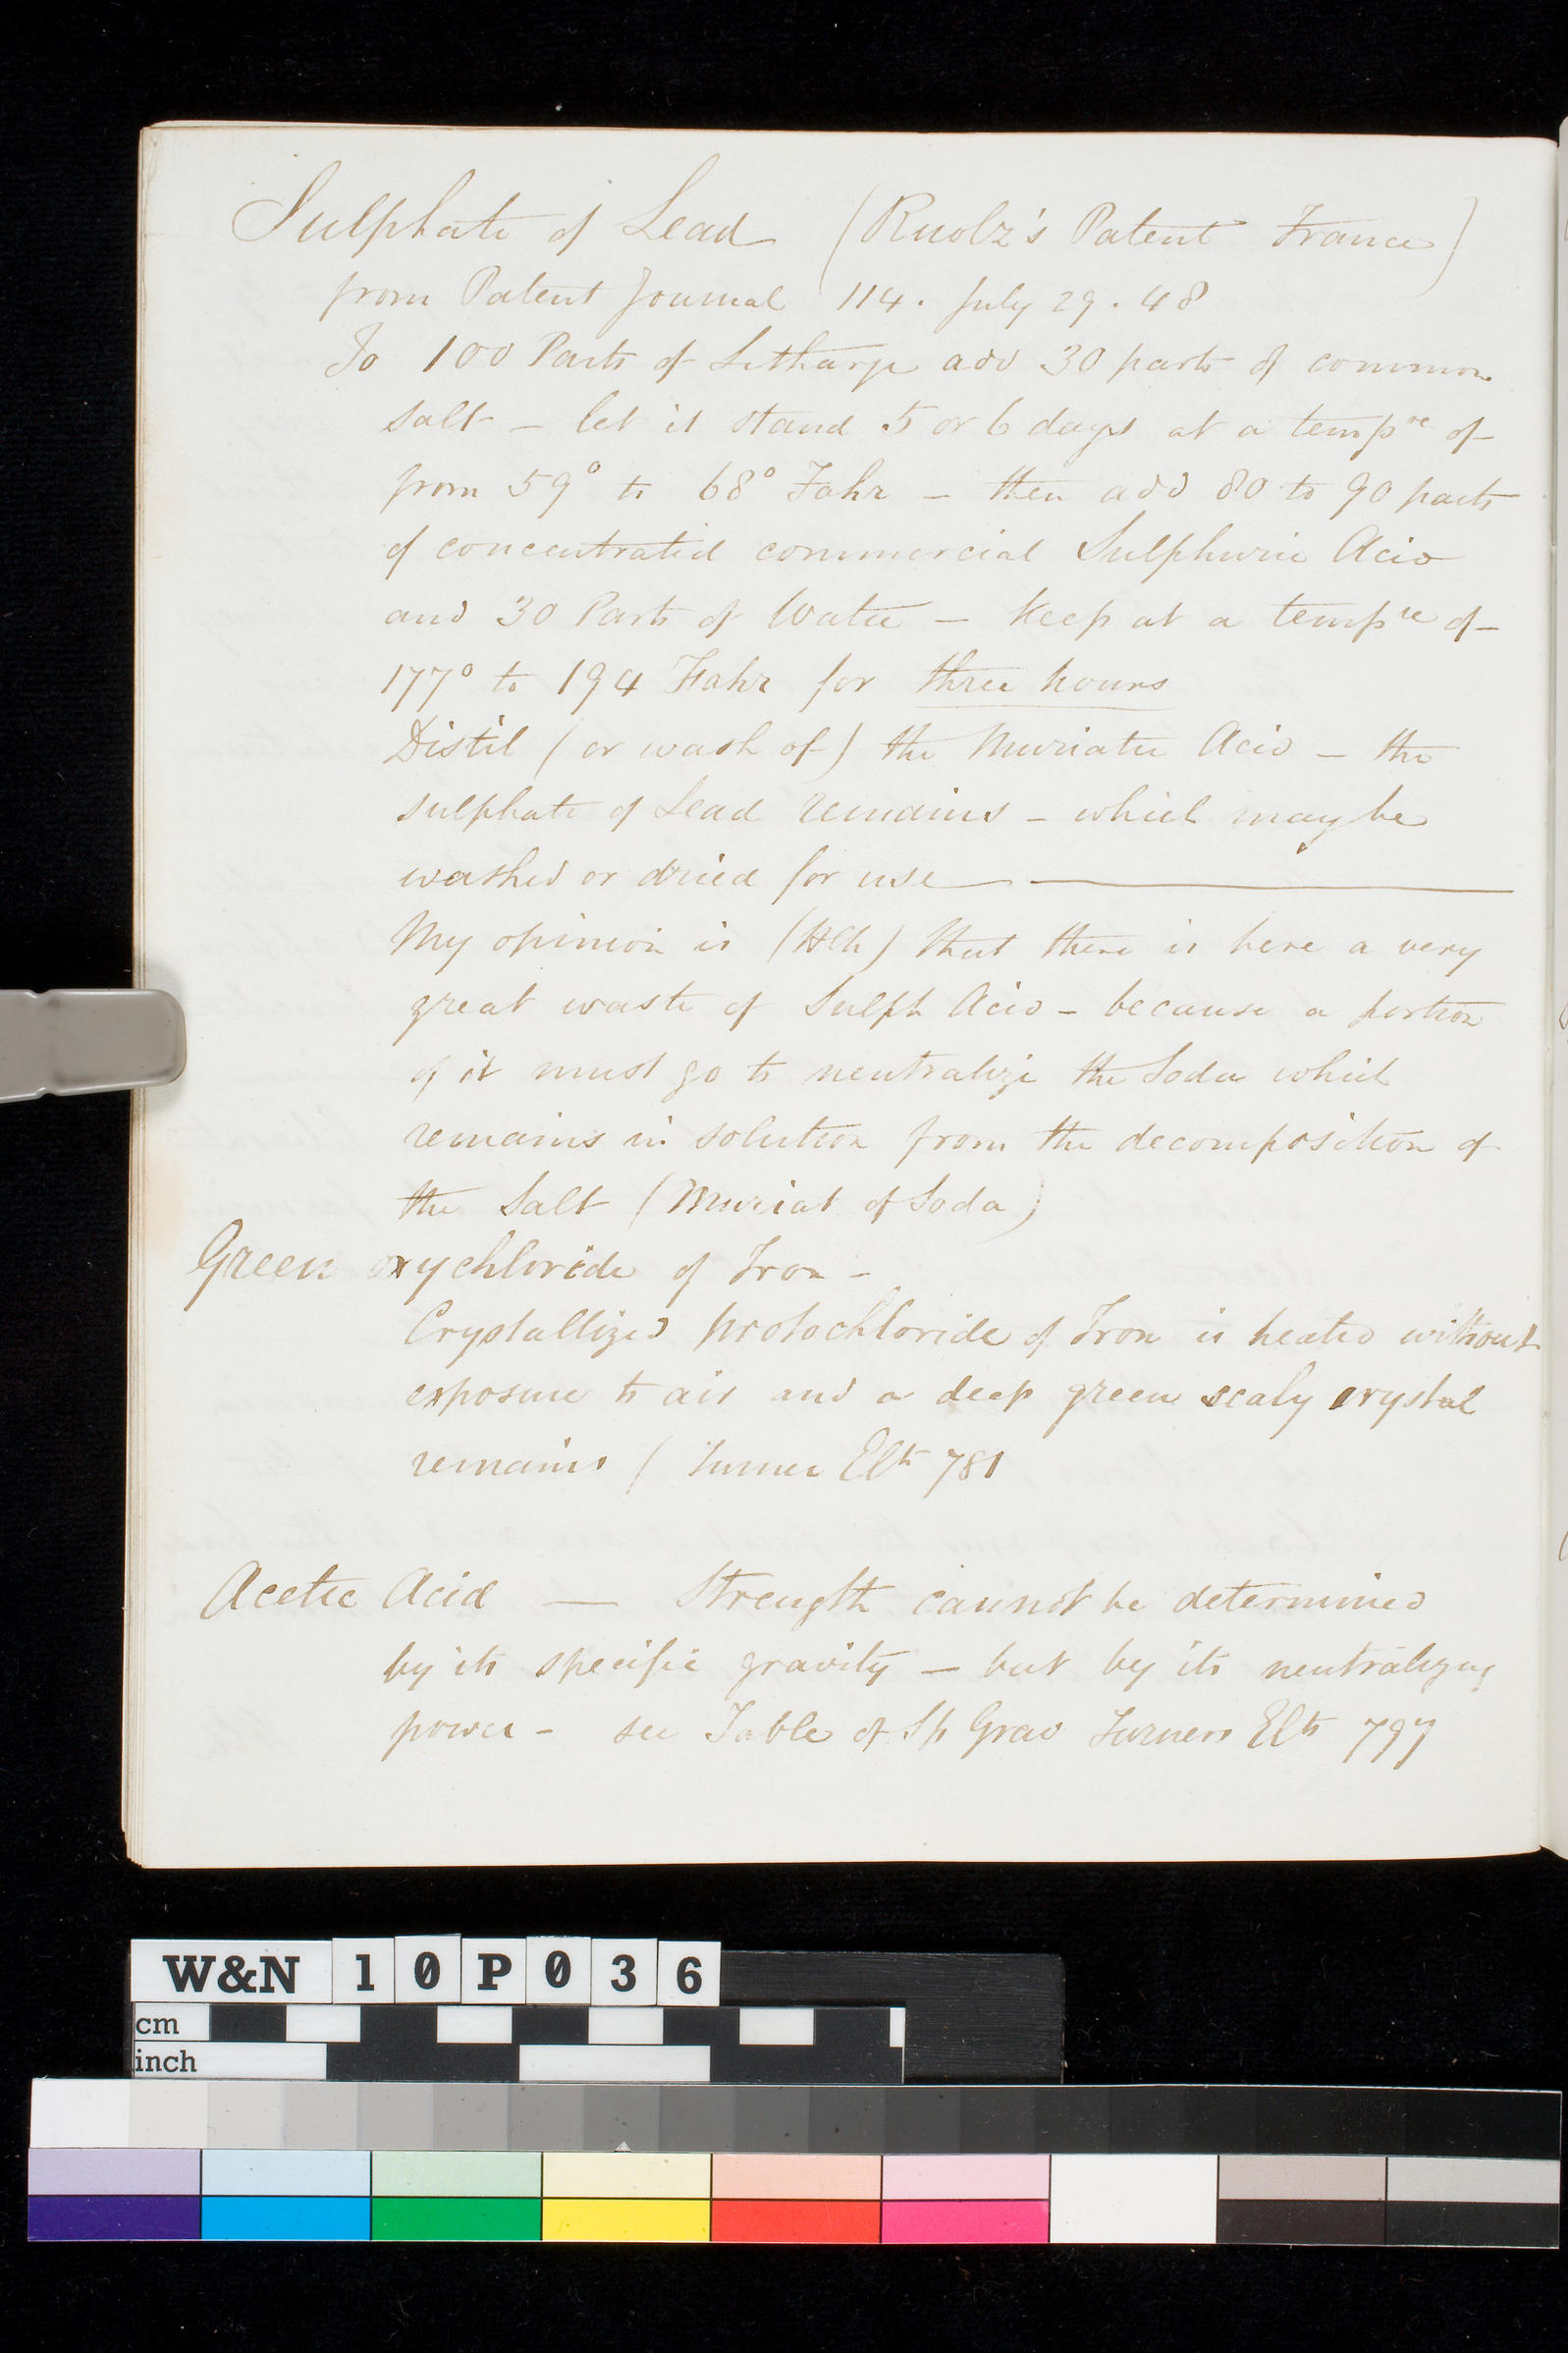 Sulphate of Lead (Ruolz's Patent France)
from Patent Journal 114. July 29. 48
To 100 Parts of Litharge add 30 parts of common
salt – let it stand 5 or 6 days at a tempre of
from 59° to 68° Fahr – then add 80 to 90 parts
of concentrated commercial Sulphuric Acid
and 30 Parts of Water – keep at a tempre of
177° to 194 Fahr for three hours
Distil (or wash of) the Muriatic Acid – the
sulphate of Lead remains – which may be
washed or dried for use
My opinion is () that there is here a very
great waste of Sulph Acid – because a portion
of it must go to neutralize the Soda which
remains in solution from the decomposition of
the Salt (Muriat of Soda)
Green oxychloride of Iron –
Crystallized protochloride of Iron is heated without
exposure to air and a deep green scaly crystal
remains (Turner Elts 781
Acetic Acid — Strength cannot be determined
by its specific gravity – but by its neutralizing
power – see Table of Sp Grav Turners Elts 797
W&N 10P036
cm
inch